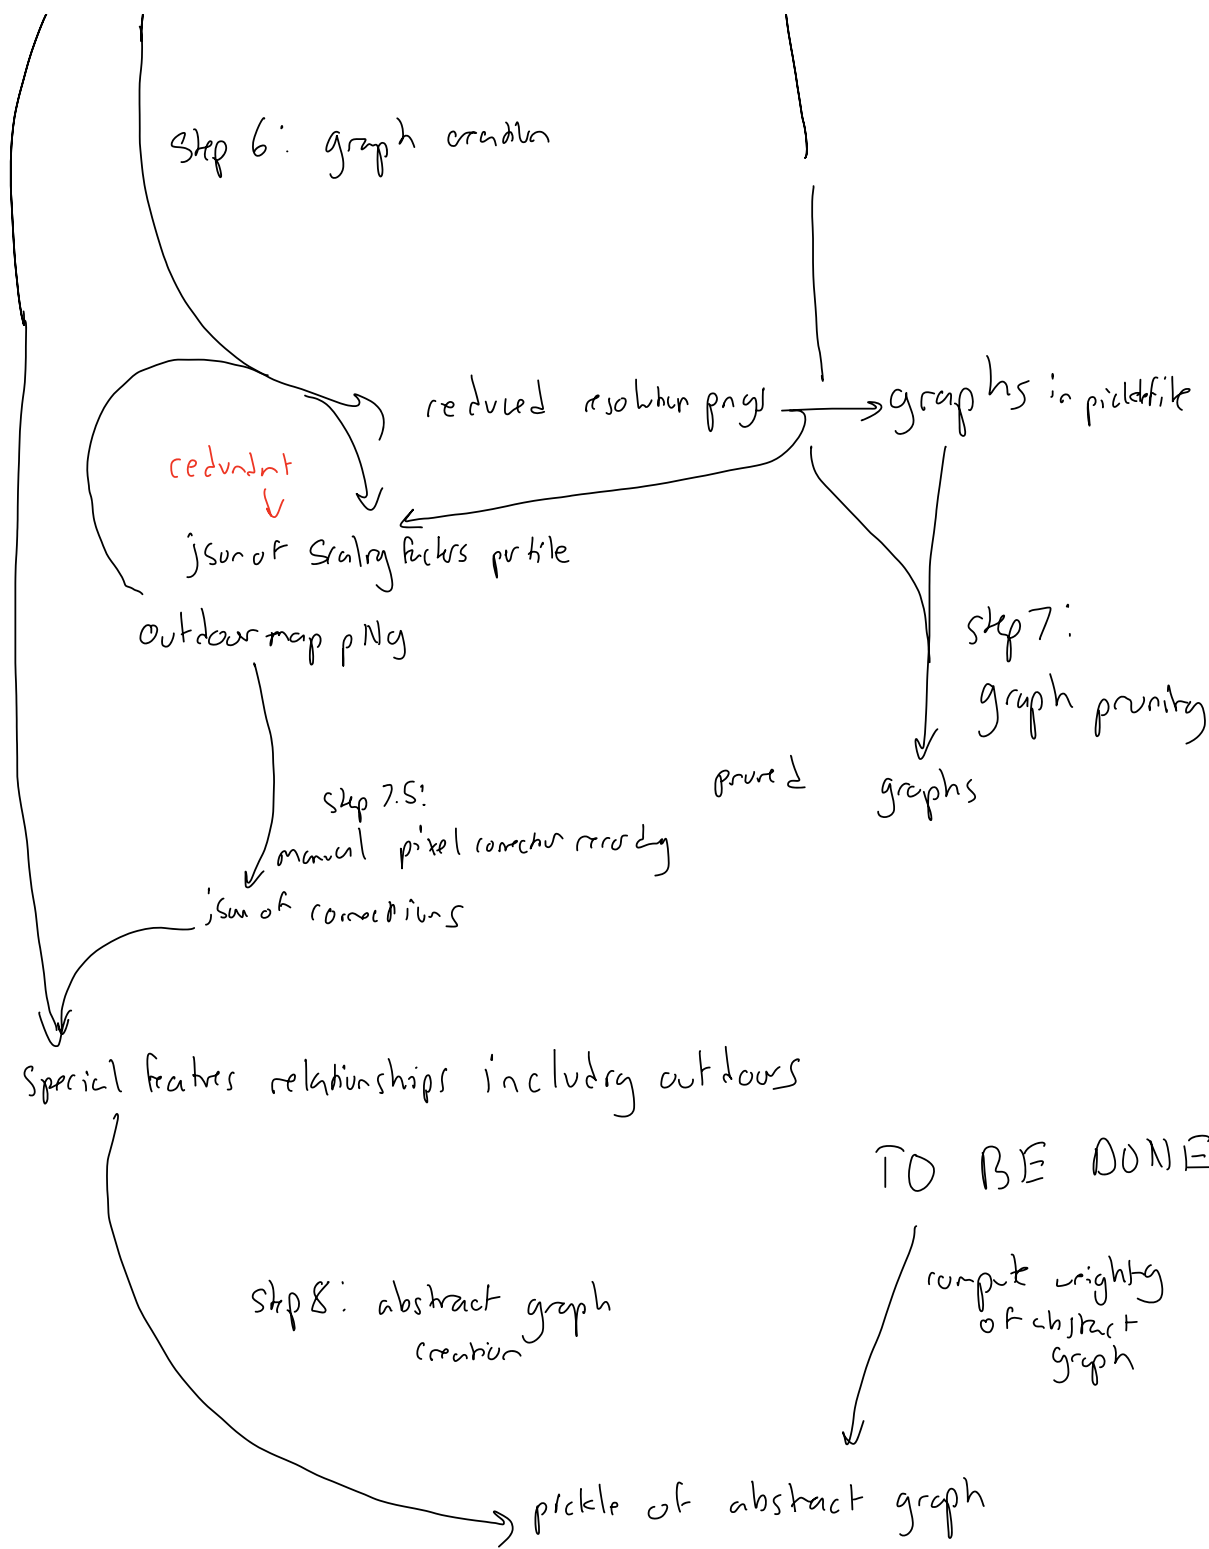 step 6: graph creation
reduced resolution pngs
graphs in picklefile
redundant
json of scaling factors per tile
outdoor map pNg
step 7:
graph pruning
pruned graphs
step 7.5:
manual pixel connection recording
json of connections
special features relationships including outdoors
TO BE DONE
compute weights
of abstract
graph
step 8: abstract graph
creation
pickle of abstract graph